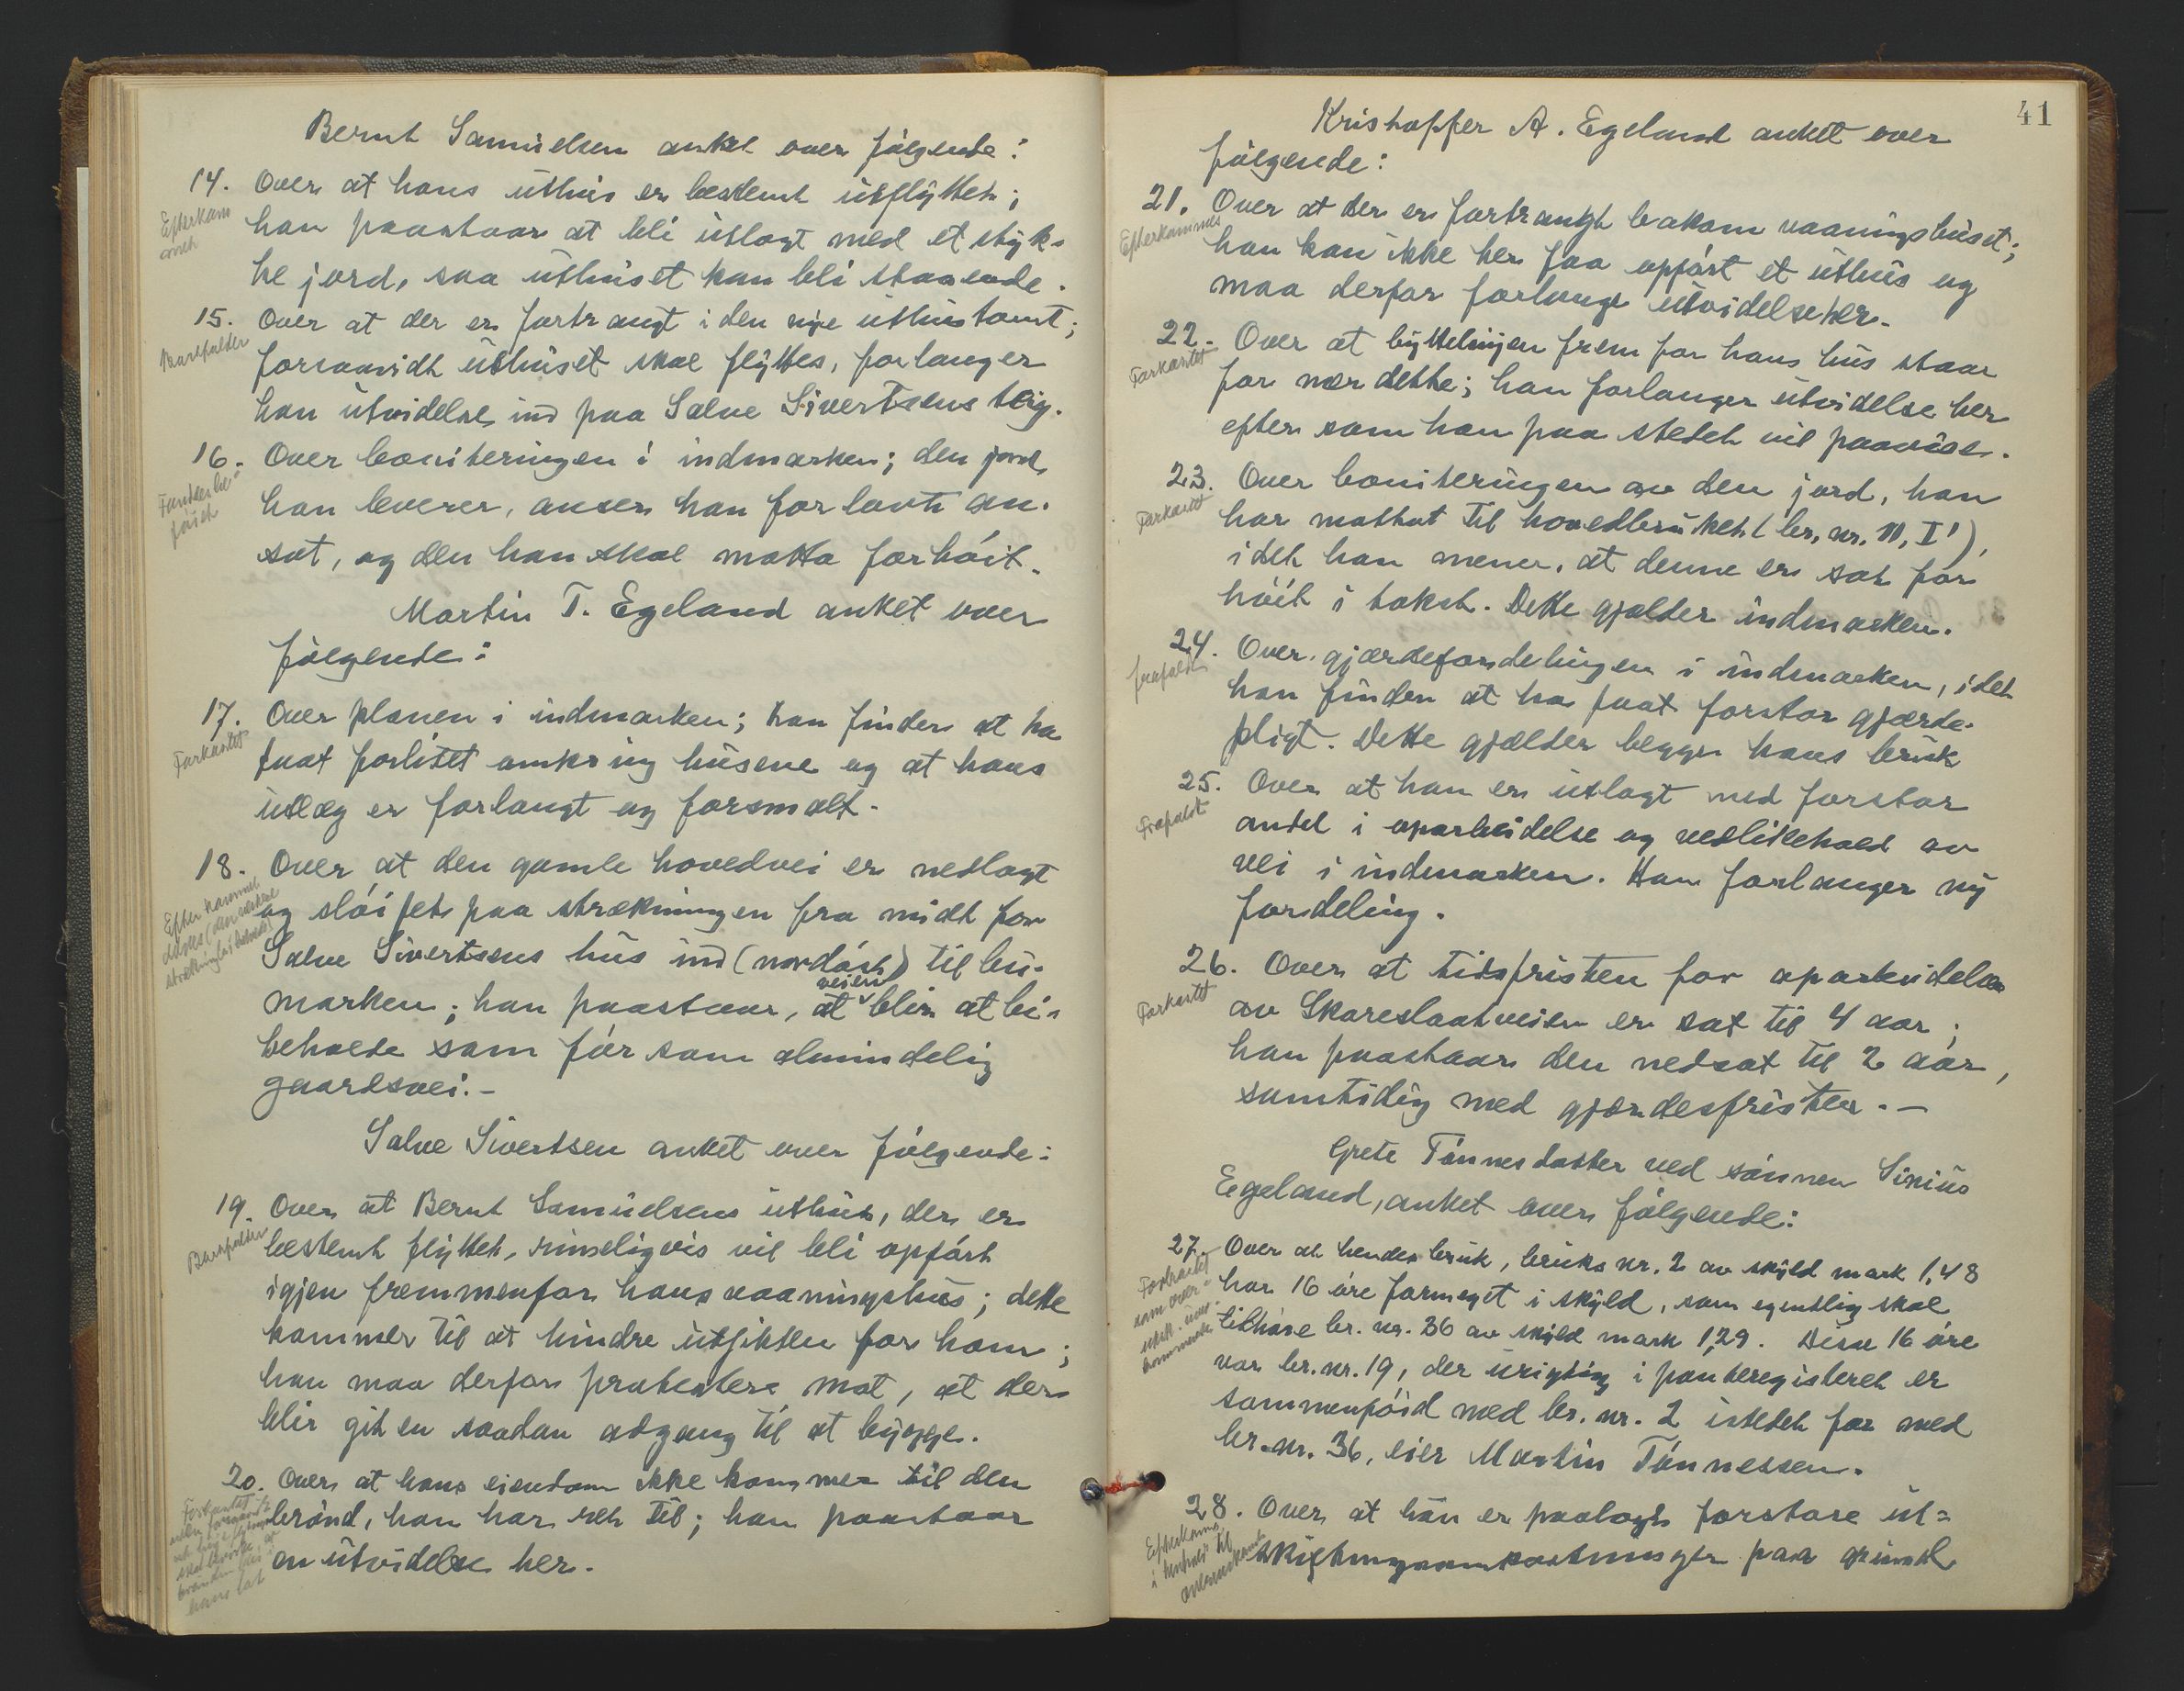 Bernt Samuelsen anket over følgende:
14. Over at hans uthus er bestemt utflyttet;
Efterkom
met
han paastaar at bli utlagt med et styk-
ke jord, saa uthuset kan bli staaende.
15. Over at der er fortrangt i den nye uthustomt;
Bortfalder
forsaavidt uthuset skal flyttes, forlanger
han utvidelse ind paa Salve Sivertsens teig.
16. Over boniteringen i indmarken; den jord
han leverer, anser han for lavt an-
sat, og den han skal motta for høit.
Martin T. Egeland anket over
følgende:
17. Over planen i indmarken; han finder at ha
Forkastet
faat forlitet omkring husene og at hans
utlæg er forlangt og forsmalt.
18. Over at den gamle hovedvei er nedlagt
og sløifet paa strækningen fra midt for
Salve Sivertsens hus ind (nordøst) til bu-
marken; han paastaar, at veien blir at bi-
beholde som før som almindelig
gaardsvei.-
Salve Sivertsen anket over følgende:
19. Over at Bernt Samuelsens uthus, der er
Bortfalder
bestemt flyttet, rimeligvis vil bli opført
igjen fremmenfor hans vaaningshus; dette
kommer til at hindre utsikten for ham;
han maa derfor protestere mot, at der
blir git en saadan adgang til at bygge.
20. Over at hans eiendom ikke kommer til den
Forkastet
brønd, han har ret til; han paastaar
en utvidelse her.
41
Kristoffer A. Egeland anket over
følgende:
21. Over at der er fortrangt bakom vaaningshuset;
Efterkommes
han kan ikke her faa opført et uthus og
maa derfor forlange utvidelse her.
22. Over at byttelinjen frem for hans hus staar
Forkastet
for nær dette; han forlanger utvidelse her
efter som han paa stedet vil paavise.
23. Over boniteringen av den jord, han
Forkastet
har mottat til hovedbruket (br. nr. 11, I'),
idet han mener, at denne er sat for
høit i takst. Dette gjælder indmarken.
24. Over gjærdefordelingen i indmarken, idet
frafaldt
han finder at ha faat forstor gjærde-
pligt. Dette gjælder begge hans bruk
25. Over at han er utlagt med forstor
Frafaldt
andel i oparbeidelse og vedlikehold av
vei i indmarken. Han forlanger ny
fordeling.
26. Over at tidsfristen for oparbeidelse
Forkastet
av Skareslaatveien er sat til 4 aar;
han paastaar den nedsat til 2 aar,
samtidig med gjærdesfristen.-
Grete Tønnesdatter ved sønnen Sirius
Egeland, anket over følgende:
27. Over at hendes bruk, bruks nr. 2 av skyld mark 1,48
Forkastet
som over-
utsk. uved-
kommende
har 16 øre formeget i skyld, som egentlig skal
tilhøre br. nr. 36 av skyld mark 1,29. Disse 16 øre
var br. nr. 19, der urigtig i panteregisteret er
sammenføid med br. nr. 2 istedet for med
br. nr. 36, eier Martin Tønnessen.
28. Over at hun er paalagt forstore ut-
Efterkom
i henhold til
overenskomst
skiftningsomkostninger paa grund